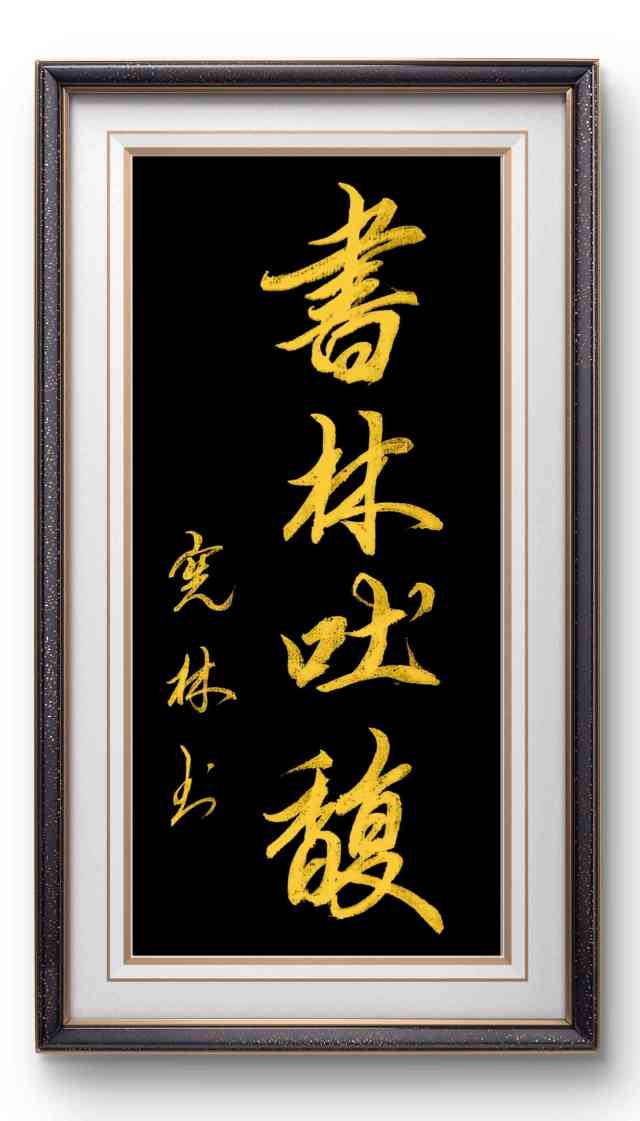 書林吐馥
宪林书